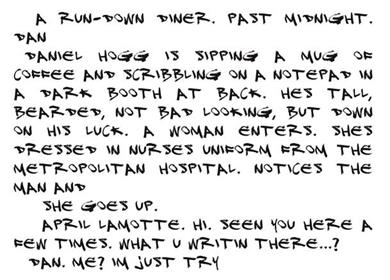 A RUN-DOWN DINER. PAST MIDNIGHT.
DAN
DANIEL HOGG IS SIPPING A MUG OF
COFFEE AND SCRIBBLING ON A NOTEPAD IN
A DARK BOOTH AT BACK. HES TALL,
BEARDED, NOT BAD LOOKING, BUT DOWN
ON HIS LUCK. A WOMAN ENTERS. SHES
DRESSED IN NURSES UNIFORM FROM THE
METROPOLITAN HOSPITAL. NOTICES THE
MAN AND
SHE GOES UP.
APRIL LAMOTTE. HI. SEEN YOU HERE A
FEW TIMES. WHAT U WRITIN THERE...?
DAN. ME? IM JUST TRY